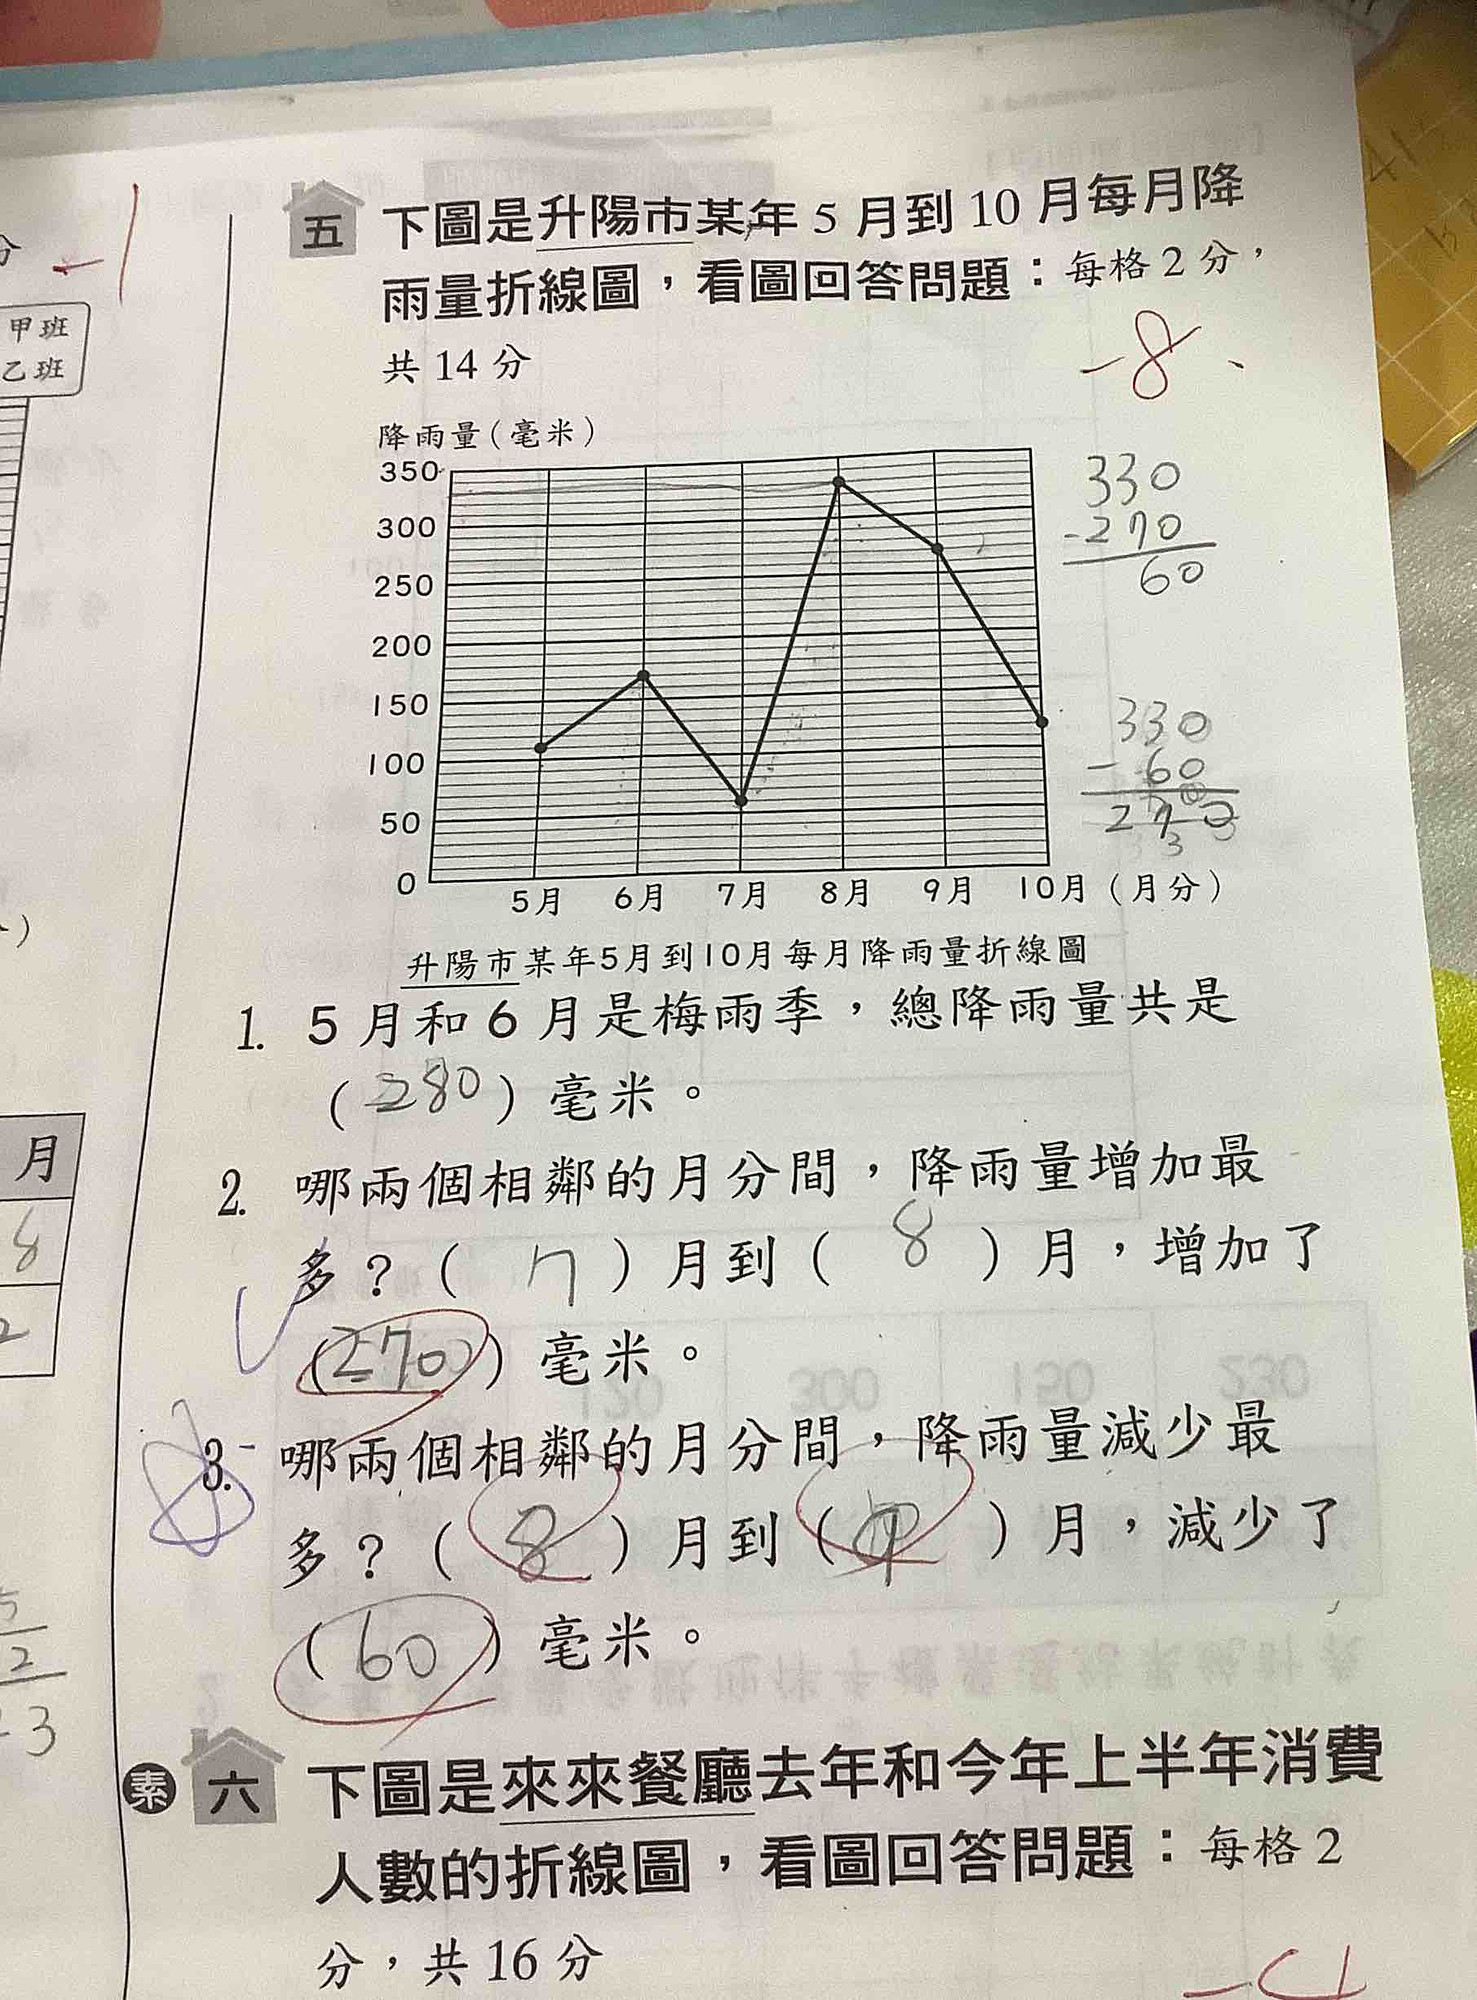 五 下圖是升陽市某年 5 月到 10 月每月降
雨量折線圖，看圖回答問題：每格 2 分，
共 14 分
-8
-1
甲班
乙班
降雨量(毫米)
350
300
250
200
150
100
50
0
5月 6月 7月 8月 9月 10月 (月分)
升陽市某年5月到10月每月降雨量折線圖
330
-270
60
330
- 60
1. 5 月和 6 月是梅雨季，總降雨量共是
(280) 毫米。
2. 哪兩個相鄰的月分間，降雨量增加最
多？( 7 ) 月到 ( 8 ) 月，增加了
(270) 毫米。
3. 哪兩個相鄰的月分間，降雨量減少最
多？( 8 ) 月到 ( 9 ) 月，減少了
(60) 毫米。
月
8
2
素 六 下圖是來來餐廳去年和今年上半年消費
人數的折線圖，看圖回答問題：每格 2
分，共 16 分